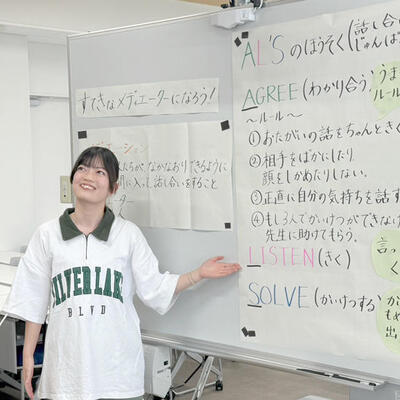 すてきなメディエーターになろう!
人たちが、なかなおりできるように
間に入って、話し合いをすること
ーター
AL'Sのほうそく(話し合い
じゅんば
AGREE(わかり合う)
うま
ルール
～ルール～
①おたがいの話をちゃんときく
②相手をばかにしたり
顔をしかめたりしない。
③正直に自分の気持ちを話す
④もし3人でかいけつができなけ
先生に助けてもらう。
LISTEN(きく)
言っ
く
SOLVE(かいけつする)
か
もめ
出
SILVERLAKE
BLVD